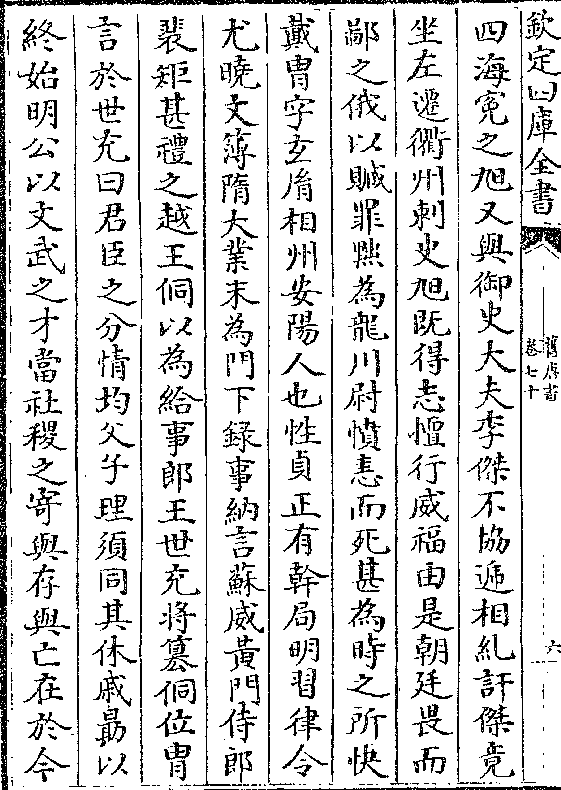 欽定四庫全書
舊唐書
卷七十
六
四海寃之旭又與御史大夫李傑不協遞相糺訐傑竟
坐左遷衢州刺史旭既得志擅行威福由是朝廷畏而
鄙之俄以贓罪黜為龍川尉憤恚而死甚為時之所快
戴胄字玄脩相州安陽人也性貞正有幹局明習律令
尤曉文簿隋大業末為門下錄事納言蘇威黃門侍郎
裴矩甚禮之越王侗以為給事郎王世充將篡侗位胄
言於世充曰君臣之分情均父子理須同其休戚勗以
終始明公以文武之才當社稷之寄與存與亡在於今